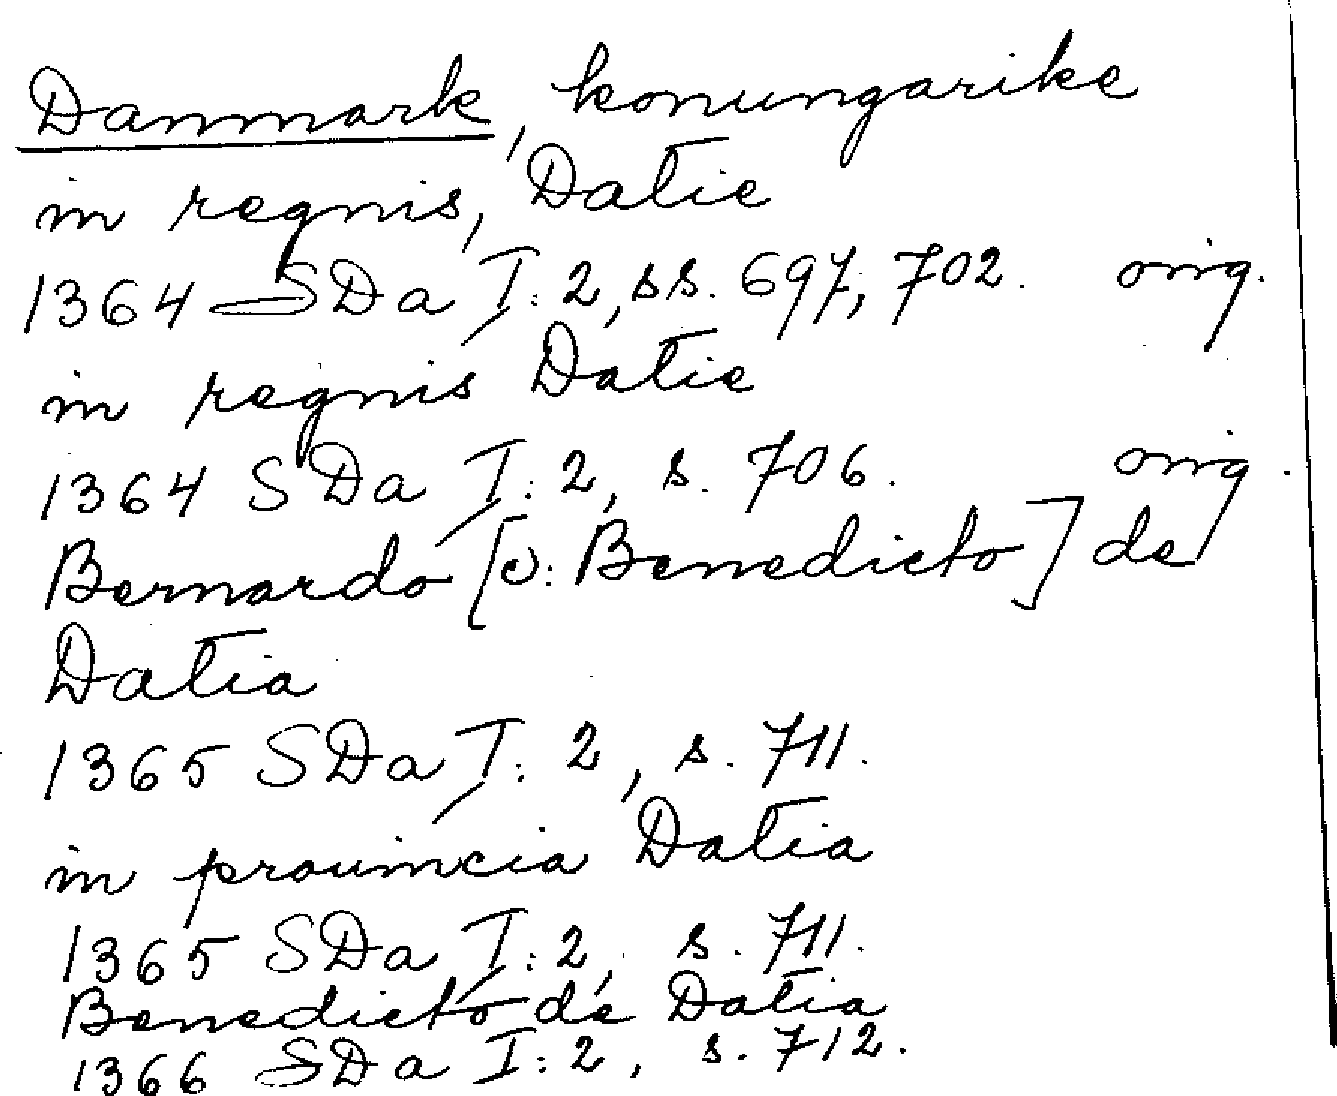 Danmark, konungarike
in regnis, Datie
1364 SDa I:2, ss. 697, 702. orig.
in regnis Datie
1364 SDa I:2, s. 706. orig.
Bernardo [ɔ: Benedicto] de
Datia
1365 SDa I:2, s. 711.
in prouincia Datia
1365 SDa I:2, s. 711.
Benedicto de Datia
1366 SDa I:2, s. 712.